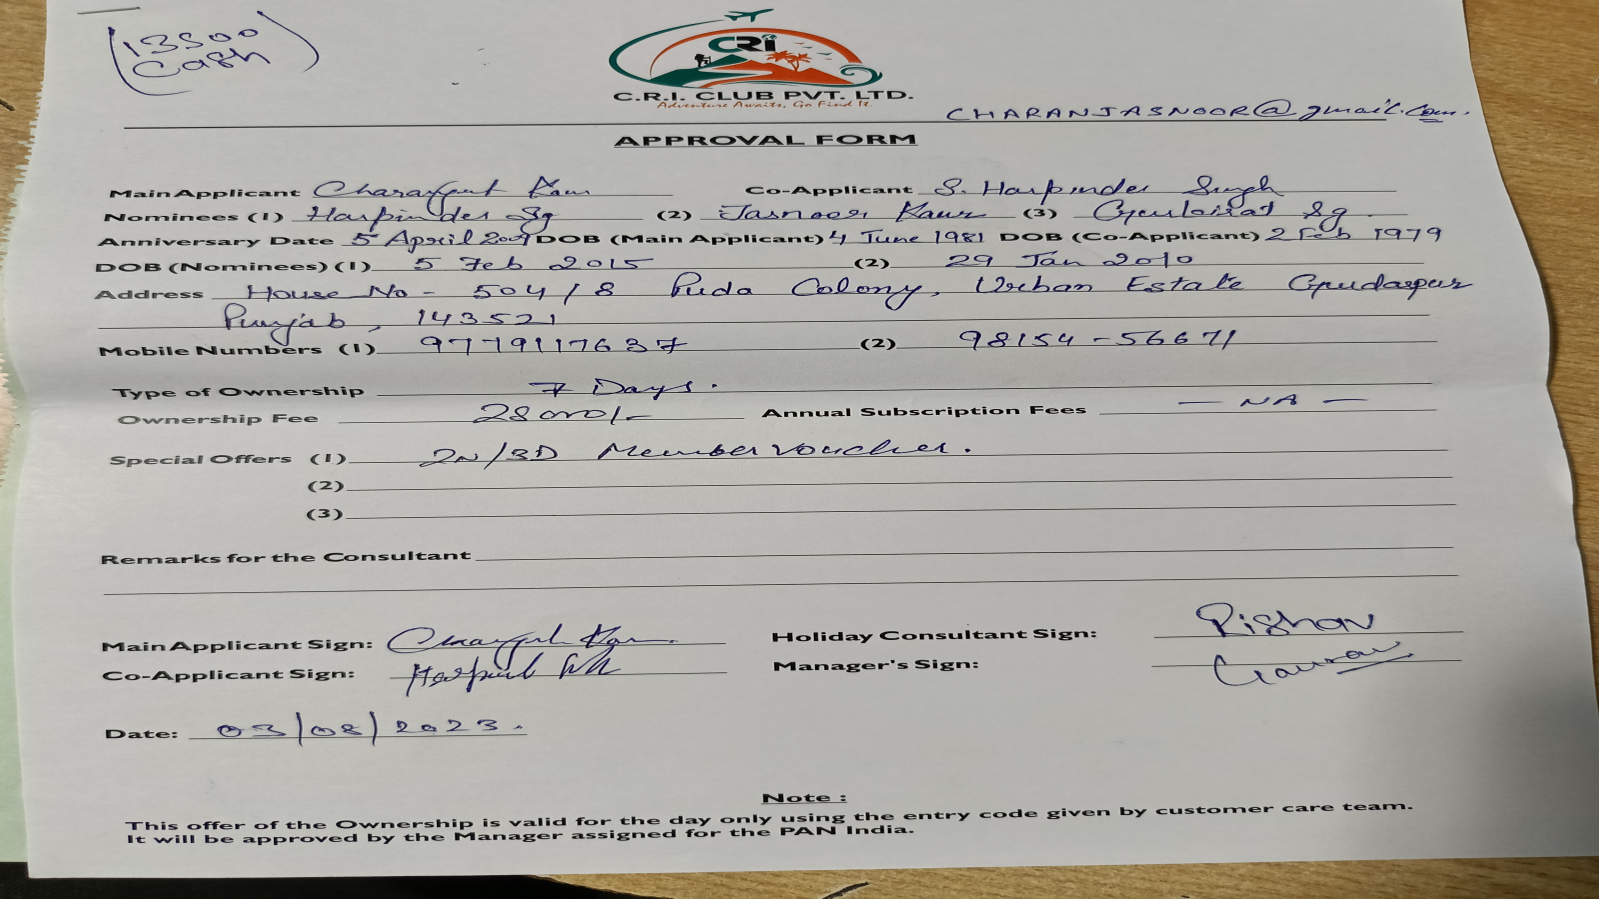 (13500
Cash)
CRi
C.R.I. CLUB PVT. LTD.
Adventure Awaits, Go Find It.
CHARANJASNOOR@gmail.com.
APPROVAL FORM
Main Applicant Charanjeet Kaur Co-Applicant S. Harpinder Singh
Nominees (1) Harpinder Sg (2) Jasnoor Kaur (3) Sg
Anniversary Date 5 April 2009 DOB (Main Applicant) 4 June 1981 DOB (Co-Applicant) 2 Feb 1979
DOB (Nominees) (1) 5 Feb 2015 (2) 29 Jan 2010
Address House No - 504/8 Puda Colony, Urban Estate Gurdaspur
Punjab, 143521
Mobile Numbers (1) 9779117637 (2) 98154-56671
Type of Ownership 7 Days.
Ownership Fee 28000/- Annual Subscription Fees - NA -
Special Offers (1) 2N/3D Member voucher.
(2)
(3)
Remarks for the Consultant
Main Applicant Sign: Charanjeet Kaur Holiday Consultant Sign: Rishav
Co-Applicant Sign: Manager's Sign: Gaurav
Date: 03/08/2023.
Note :
This offer of the Ownership is valid for the day only using the entry code given by customer care team.
It will be approved by the Manager assigned for the PAN India.